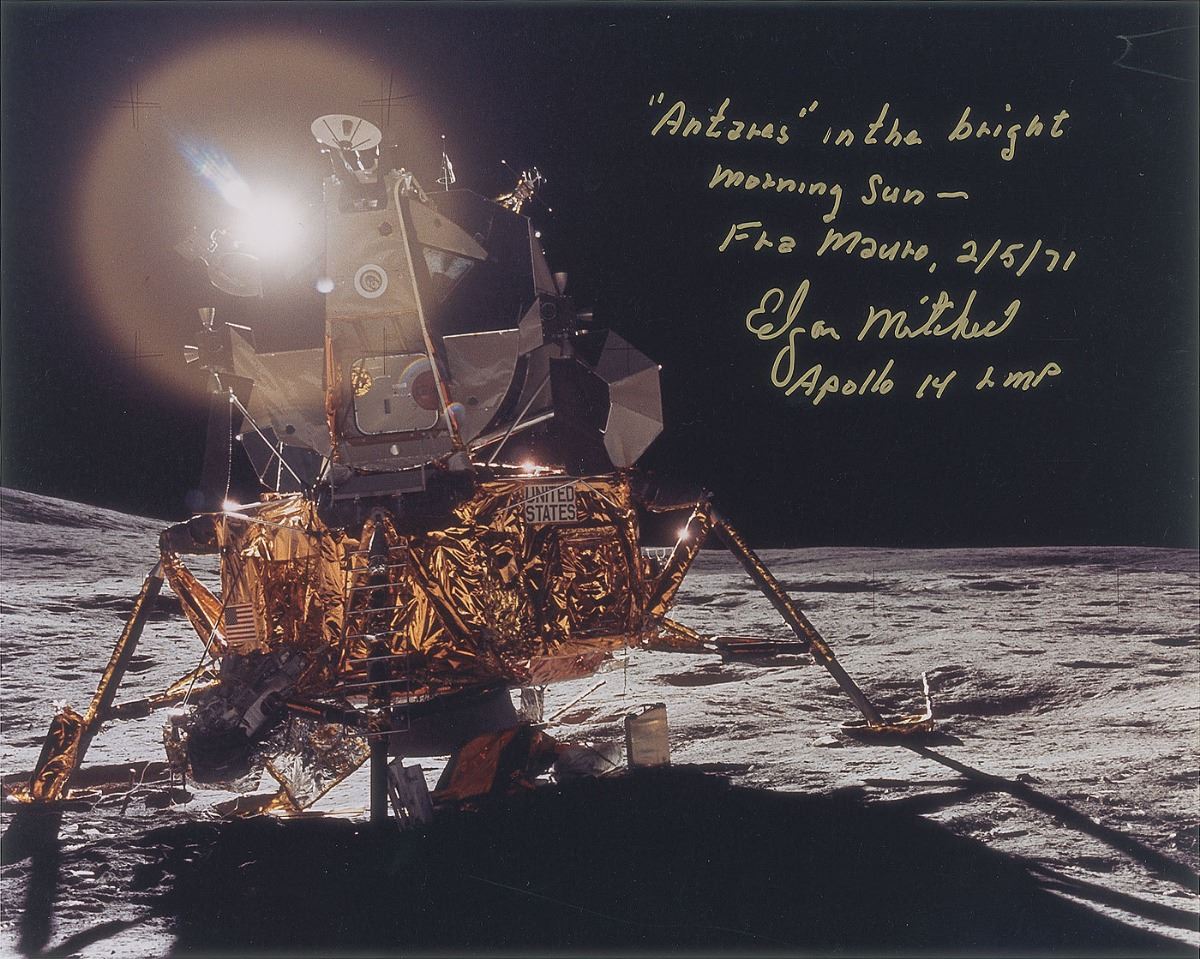 "Antares" in the bright
morning Sun —
Fra Mauro, 2/5/71
Edgar Mitchell
Apollo 14 LMP
UNITED
STATES